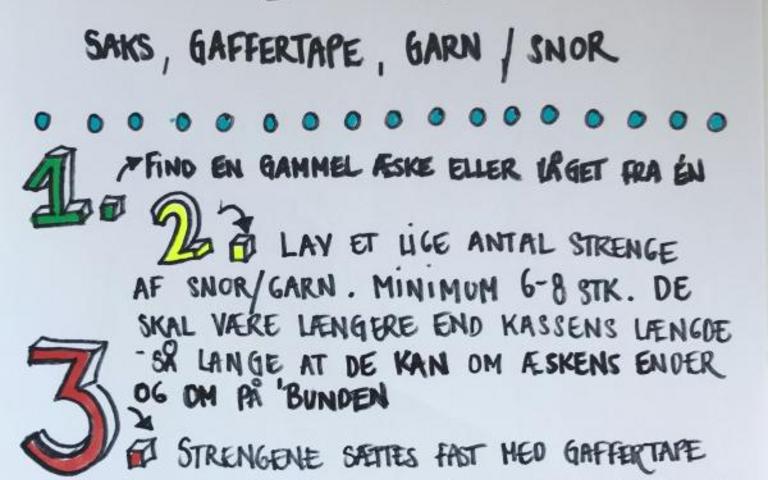 SAKS, GAFFERTAPE, GARN / SNOR
1. FIND EN GAMMEL ÆSKE ELLER LÅGET FRA ÉN
2. LAV ET LIGE ANTAL STRENGE
AF SNOR/GARN. MINIMUM 6-8 STK. DE
SKAL VÆRE LÆNGERE END KASSENS LÆNGDE
- SÅ LANGE AT DE KAN OM ÆSKENS ENDER
OG OM PÅ 'BUNDEN
3. STRENGENE SÆTTES FAST MED GAFFERTAPE